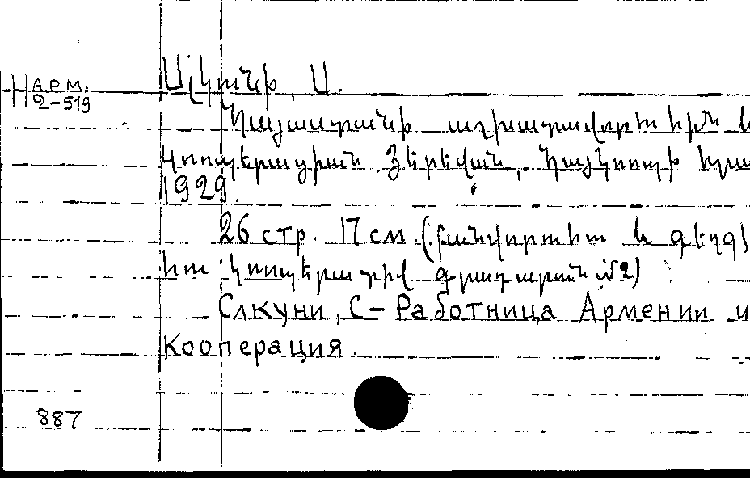 Սլկունի, Ս.
АРМ.
2-519
Հայաստանի աշխատավորուհին և
կոոպերացիան. Յերեվան, Հայկոոպի հրա
1929.
26 стр. 17 см. (Բանվորուհու և գեղջ
կու կոոպերատիվ գրադարան №2)
Слкуни, С - Работница Армении и
Кооперация.
887